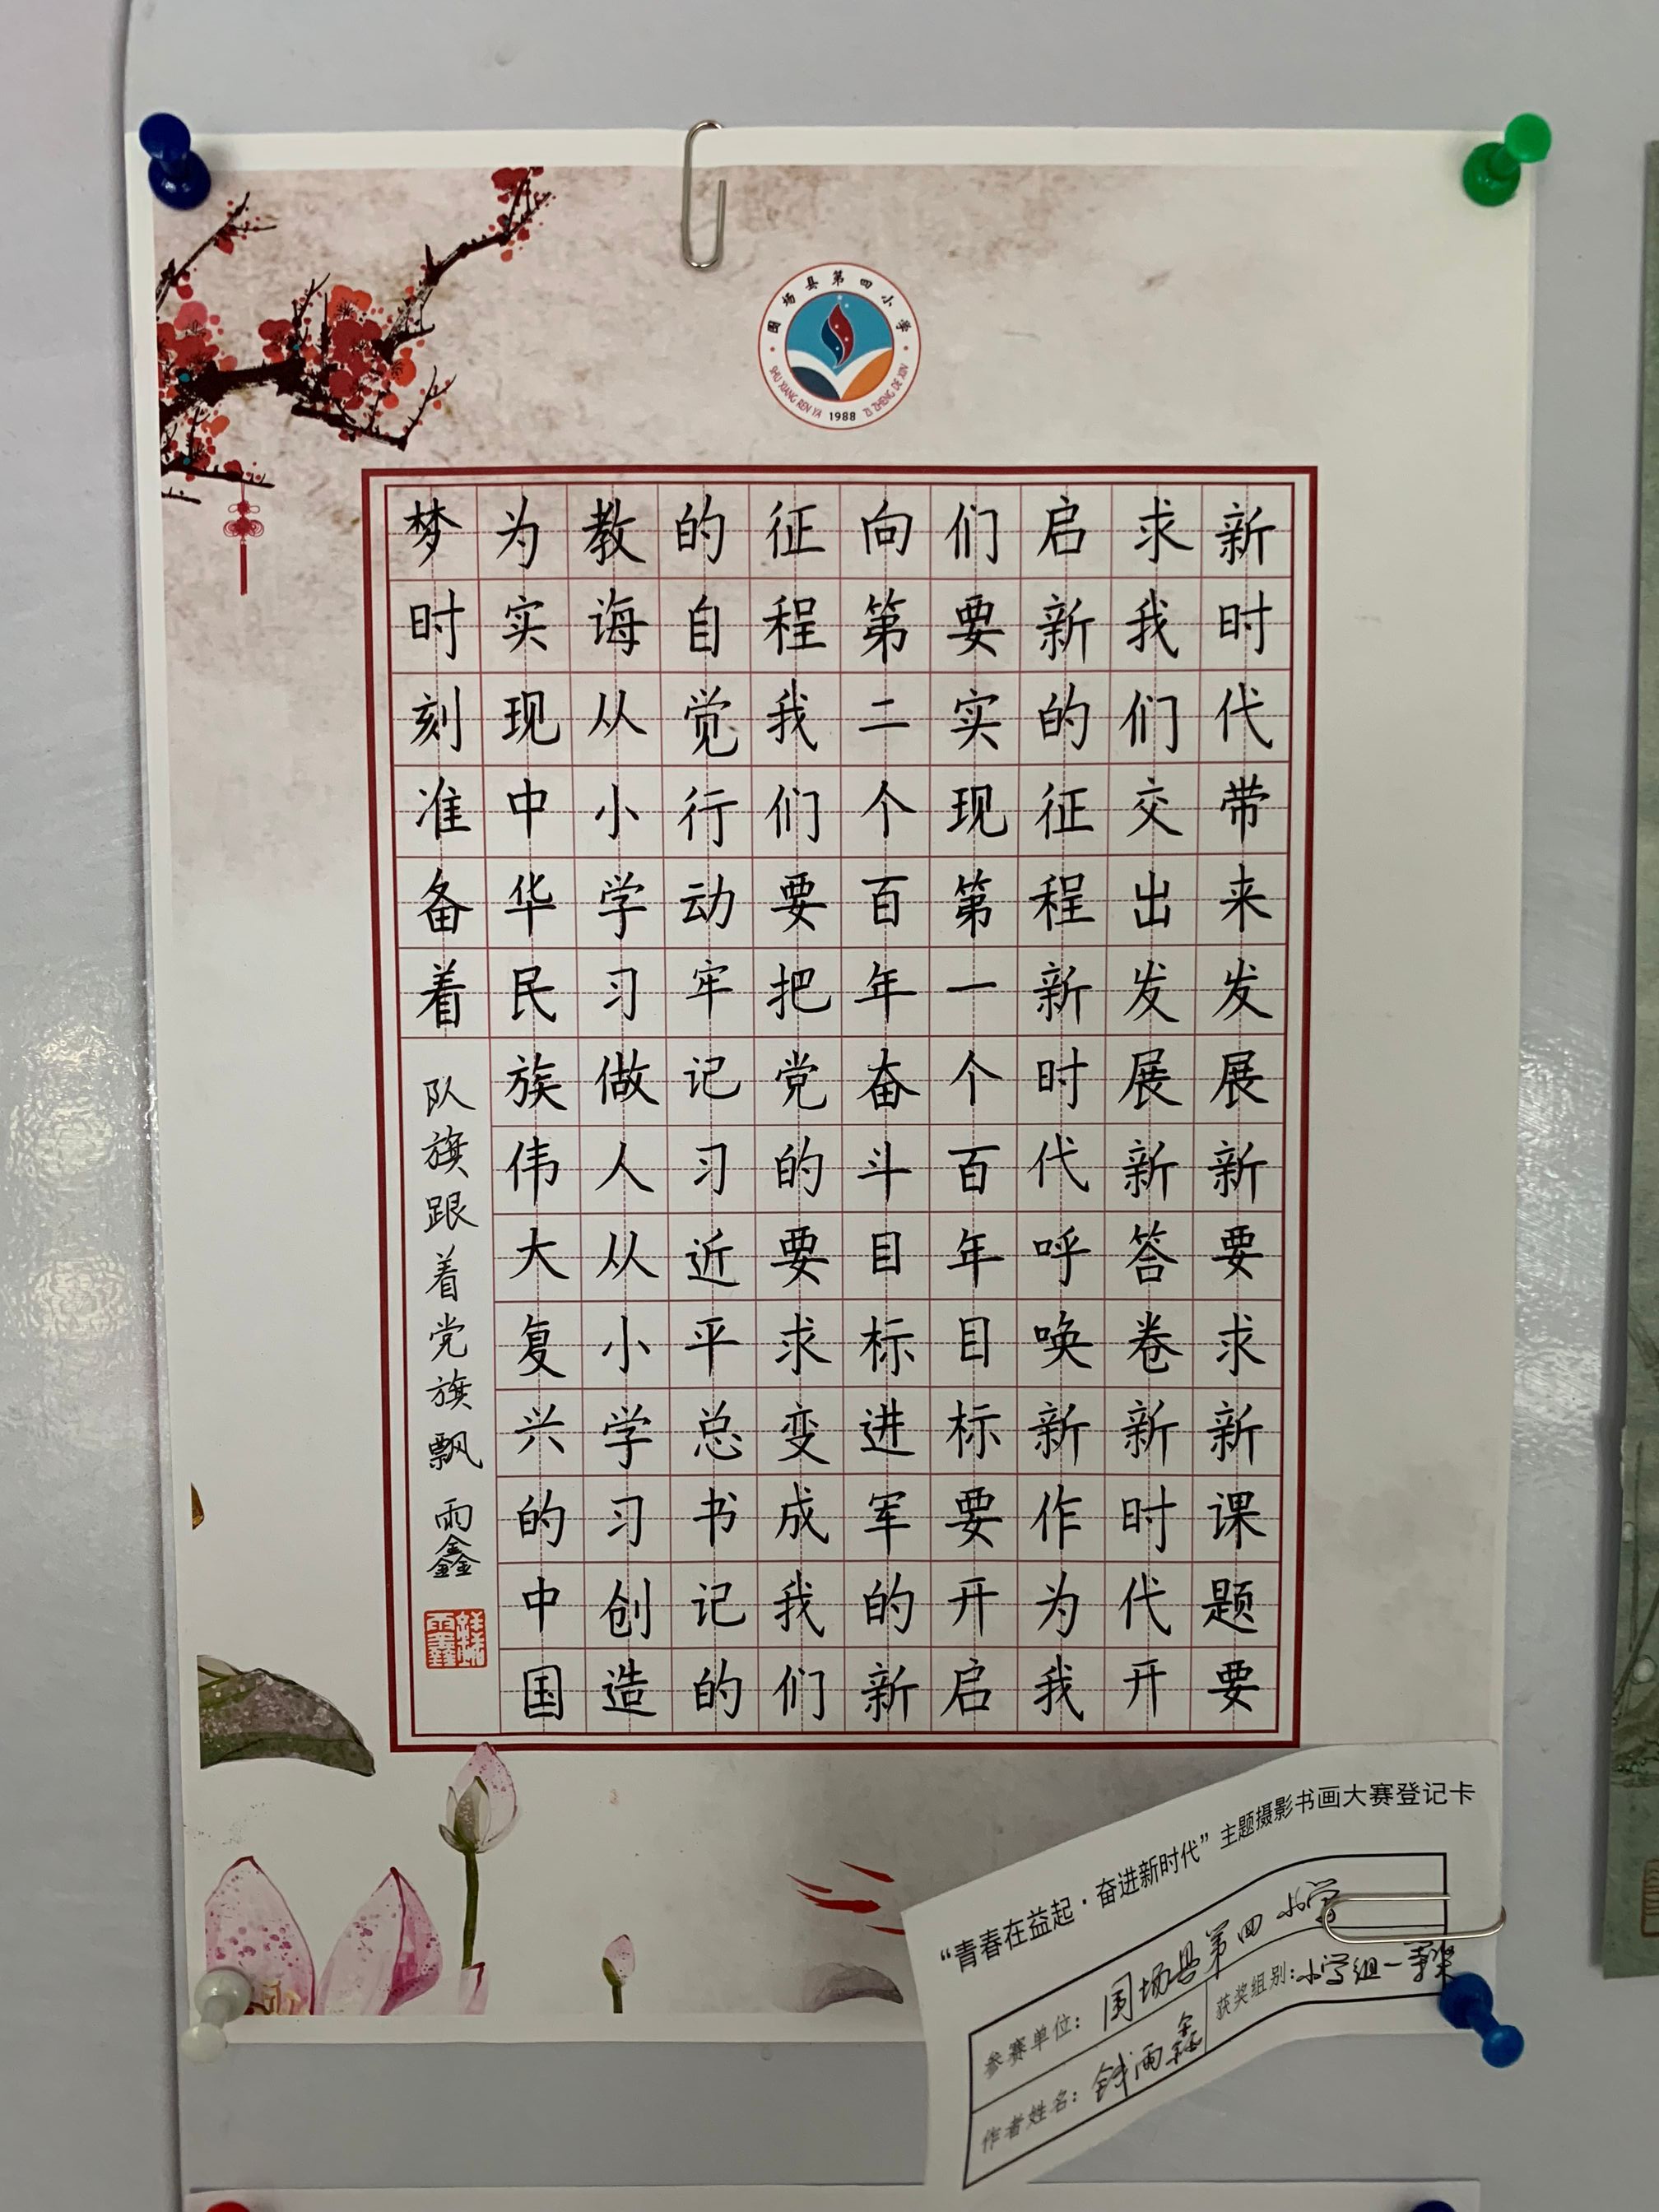 围场县第四小学
SHU XIANG REN YA 1988 ZI ZHENG DE XIN
新时代带来发展新要求新课题要
求我们交出发展新答卷新时代开
启新的征程新时代呼唤新作为我
们要实现第一个百年目标要开启
向第二个百年奋斗目标进军的新
征程我们要把党的要求变成我们
的自觉行动牢记习近平总书记的
教诲从小学习做人从小学习创造
为实现中华民族伟大复兴的中国
梦时刻准备着
队旗跟着党旗飘 雨鑫
“青春在益起·奋进新时代”主题摄影书画大赛登记卡
参赛单位：围场县第四小学
作者姓名：钱雨鑫
获奖组别：小学组一等奖